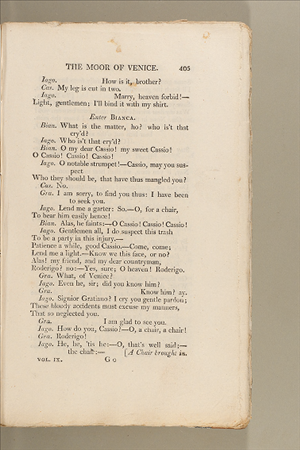 THE MOOR OF VENICE. 405
Iago. How is it, brother?
Cas. My leg is cut in two.
Iago. Marry, heaven forbid!—
Light, gentlemen; I'll bind it with my shirt.
Enter BIANCA.
Bian. What is the matter, ho? who is't that
cry'd?
Iago. Who is't that cry'd?
Bian. O my dear Cassio! my sweet Cassio!
O Cassio! Cassio! Cassio!
Iago. O notable strumpet!—Cassio, may you sus-
pect
Who they should be, that have thus mangled you?
Cas. No.
Gra. I am sorry, to find you thus: I have been
to seek you.
Iago. Lend me a garter: So.—O, for a chair,
To bear him easily hence!
Bian. Alas, he faints:—O Cassio! Cassio! Cassio!
Iago. Gentlemen all, I do suspect this trash
To be a party in this injury.—
Patience a while, good Cassio.—Come, come;
Lend me a light.—Know we this face, or no?
Alas! my friend, and my dear countryman,
Roderigo? no:—Yes, sure; O heaven! Roderigo.
Gra. What, of Venice?
Iago. Even he, sir; did you know him?
Gra. Know him? ay.
Iago. Signior Gratiano? I cry you gentle pardon;
These bloody accidents must excuse my manners,
That so neglected you.
Gra. I am glad to see you.
Iago. How do you, Cassio?—O, a chair, a chair!
Gra. Roderigo!
Iago. He, he, 'tis he:—O, that's well said;—
the chair:— [A Chair brought in.
VOL. IX. G G